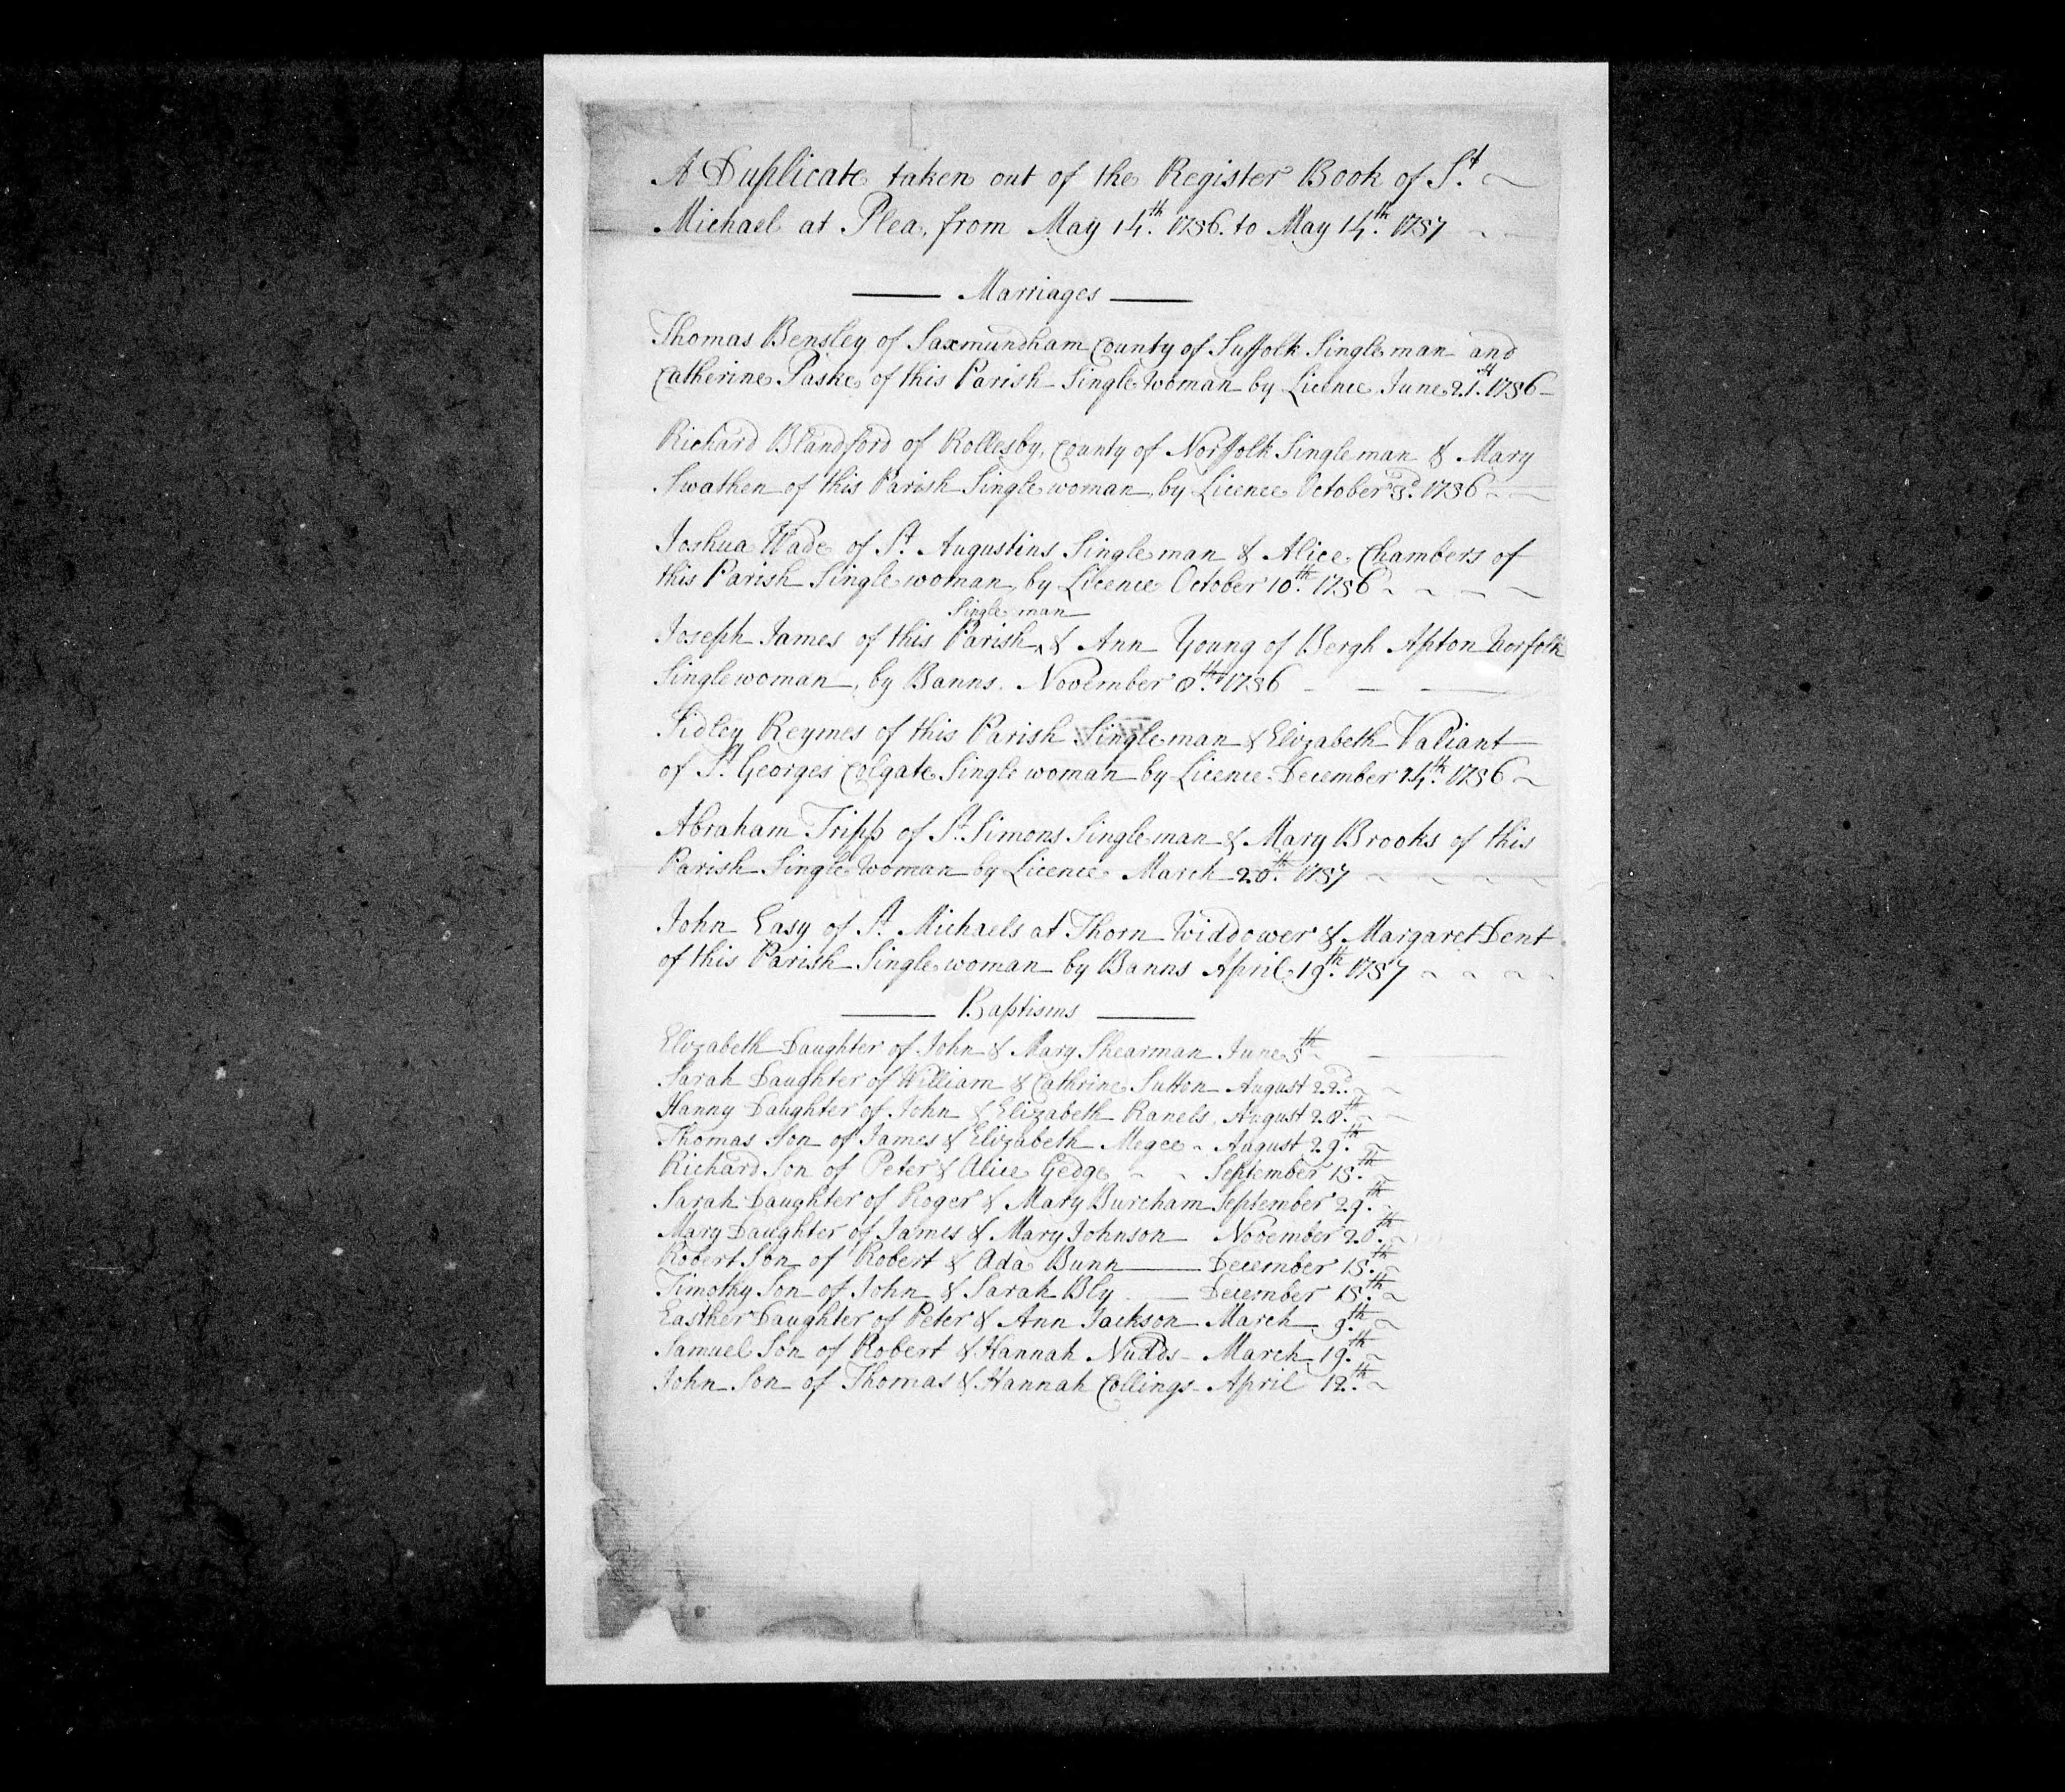 A Duplicate taken out of the Register Book of St.
Michael at Plea, from May 14th. 1756. to May 14th. 1757
Marriages
Thomas Bensley of Saxmundham County of Suffolk Single man and
Catherine Paske of this Parish Single Woman by Licence June 21st. 1756
Richard Blandford of Rollesby, County of Norffolk Single man & Mary
Swathen of this Parish Single woman, by Licence October 3d. 1756
Joshua Wade of St. Augustins Single man & Alice Chambers of
this Parish Single woman, by Licence October 10th. 1756
Single man
Joseph James of this Parish ^ & Ann Young of Bergh Apton Norfolk
Single woman, by Banns. November 8th. 1756
Sidley Reymes of this Parish Single man & Elizabeth Valiant
of St. Georges Colgate Single woman by Licence December 24th. 1756
Abraham Tripp of St. Simons Single man & Mary Brooks of this
Parish Single Woman by Licence March 20th. 1757
John Easy of St. Michaels at Thorn Widdower & Margaret Dent
of this Parish Single woman by Banns April 19th. 1757
Baptisms
Elizabeth Daughter of John & Mary Shearman June 5th
Sarah Daughter of William & Cathrine Sutton August 22d.
Hanny Daughter of John & Elizabeth Ranels August 28th.
Thomas Son of James & Elizabeth Megee August 29th.
Richard Son of Peter & Alice Gedge September 15th.
Sarah Daughter of Roger & Mary Burcham September 29th.
Mary Daughter of James & Mary Johnson November 28th.
Robert Son of Robert & Ada Bunn December 15th.
Timothy Son of John & Sarah Bly December 15th.
Easther Daughter of Peter & Ann Jackson March 9th.
Samuel Son of Robert & Hannah Nudds March 19th.
John Son of Thomas & Hannah Collings April 12th.